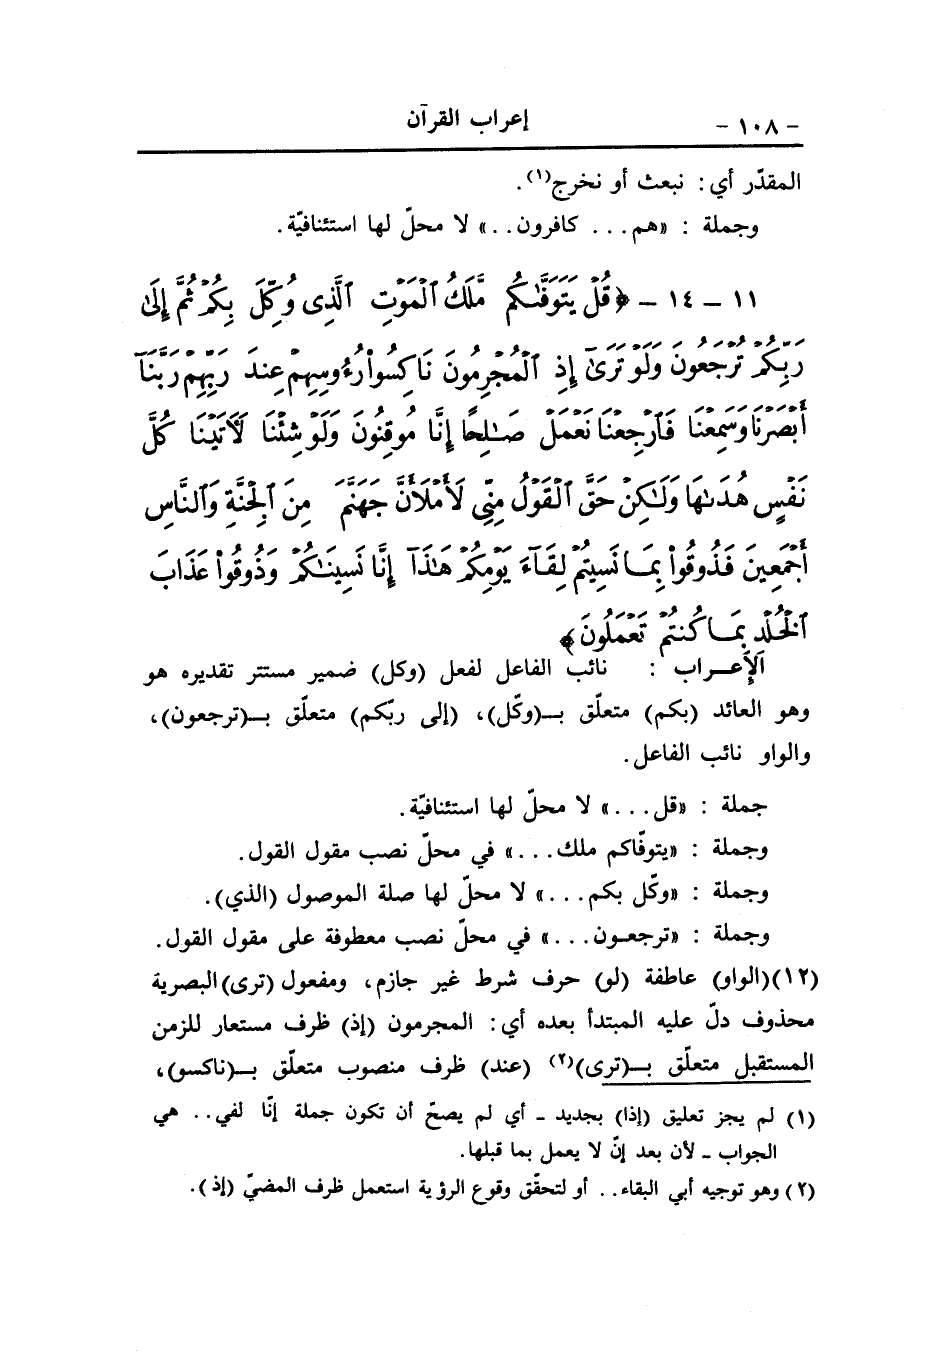 - ١٠٨ - إعراب القرآن
المقدّر أي: نبعث أو نخرج(١).
وجملة : «هم... كافرون..» لا محلّ لها استئنافيّة.
١١ - ١٤ - ﴿قُلْ يَتَوَفَّىٰكُم مَّلَكُ ٱلْمَوْتِ ٱلَّذِى وُكِّلَ بِكُمْ ثُمَّ إِلَىٰ
رَبِّكُمْ تُرْجَعُونَ وَلَوْ تَرَىٰٓ إِذِ ٱلْمُجْرِمُونَ نَاكِسُوا۟ رُءُوسِهِمْ عِندَ رَبِّهِمْ رَبَّنَآ
أَبْصَرْنَا وَسَمِعْنَا فَٱرْجِعْنَا نَعْمَلْ صَـٰلِحًا إِنَّا مُوقِنُونَ وَلَوْ شِئْنَا لَأَتَيْنَا كُلَّ
نَفْسٍ هُدَىٰهَا وَلَـٰكِنْ حَقَّ ٱلْقَوْلُ مِنِّى لَأَمْلَأَنَّ جَهَنَّمَ مِنَ ٱلْجِنَّةِ وَٱلنَّاسِ
أَجْمَعِينَ فَذُوقُوا۟ بِمَا نَسِيتُمْ لِقَآءَ يَوْمِكُمْ هَـٰذَآ إِنَّا نَسِينَـٰكُمْ وَذُوقُوا۟ عَذَابَ
ٱلْخُلْدِ بِمَا كُنتُمْ تَعْمَلُونَ﴾
الإعـراب : نائب الفاعل لفعل (وكل) ضمير مستتر تقديره هو
وهو العائد (بكم) متعلّق بـ(وكّل)، (إلى ربّكم) متعلّق بـ(ترجعون)،
والواو نائب الفاعل.
جملة : «قل...» لا محلّ لها استئنافيّة.
وجملة : «يتوفّاكم ملك...» في محلّ نصب مقول القول.
وجملة : «وكّل بكم...» لا محلّ لها صلة الموصول (الذي).
وجملة : «ترجعـون...» في محلّ نصب معطوفة على مقول القول.
(١٢)(الواو) عاطفة (لو) حرف شرط غير جازم، ومفعول (ترى) البصرية
محذوف دلّ عليه المبتدأ بعده أي: المجرمون (إذ) ظرف مستعار للزمن
المستقبل متعلّق بـ(ترى)(٢) (عند) ظرف منصوب متعلّق بـ(ناكسو)،
(١) لم يجز تعليق (إذا) بجديد - أي لم يصحّ أن تكون جملة إنّا لفي.. هي
الجواب - لأن بعد إنّ لا يعمل بما قبلها.
(٢) وهو توجيه أبي البقاء.. أو لتحقّق وقوع الرؤية استعمل ظرف المضيّ (إذ).